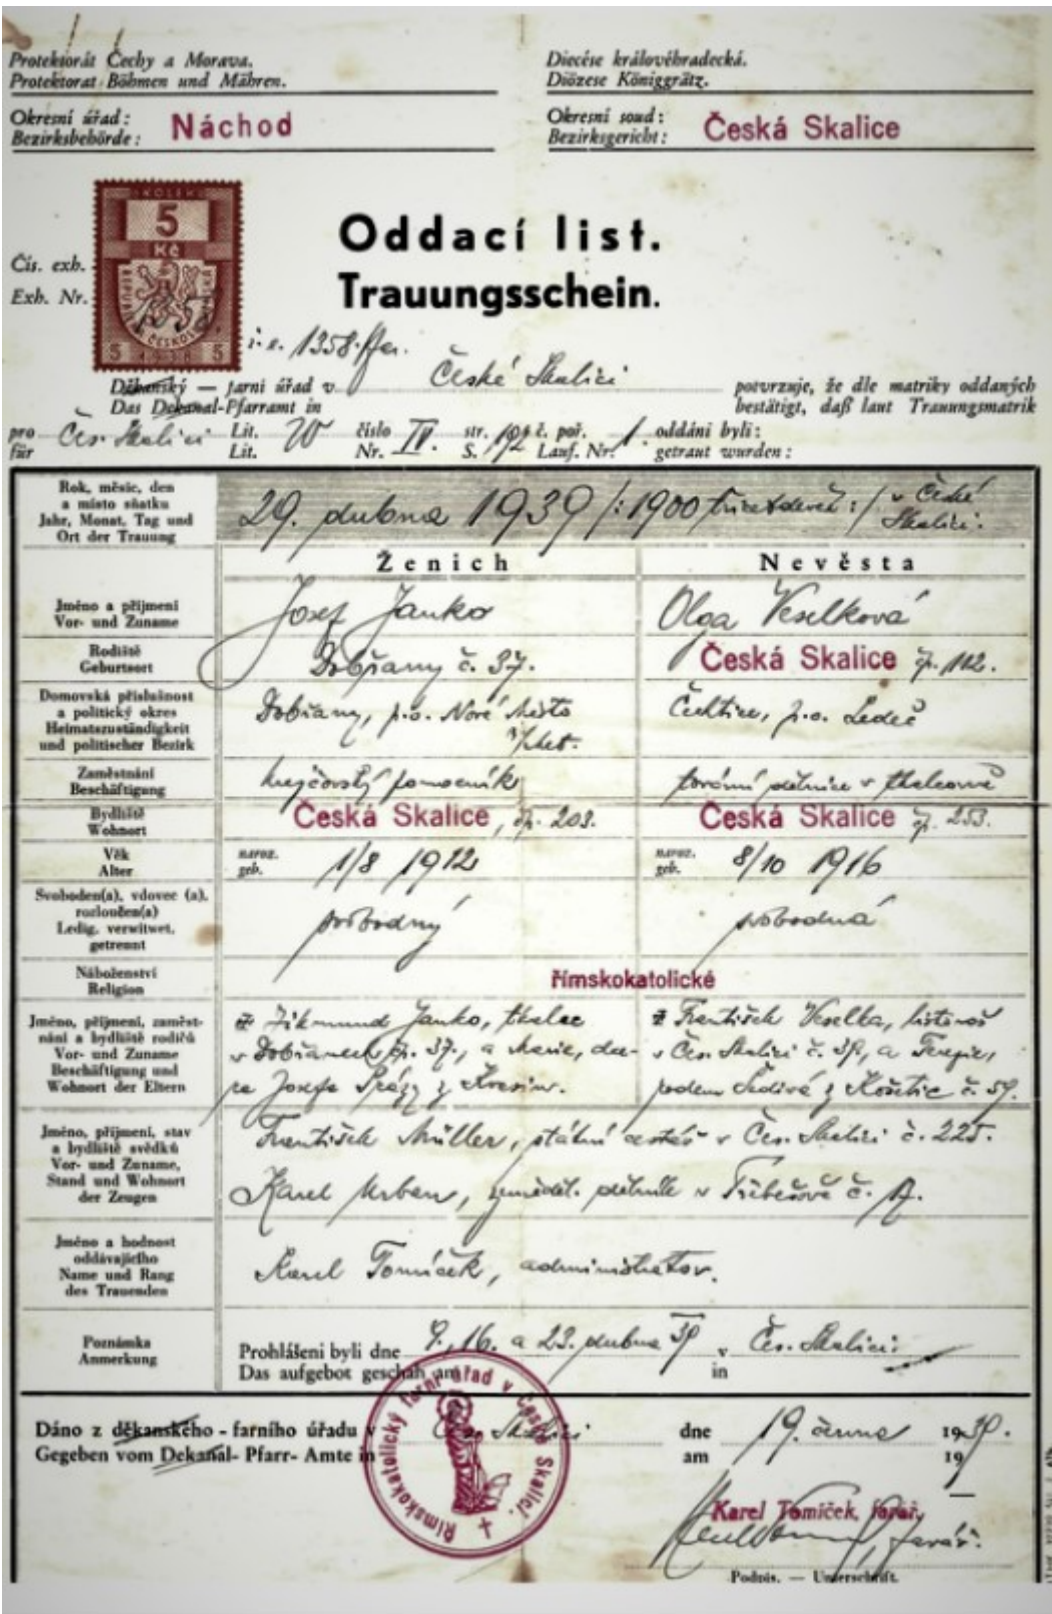 Protektorát Čechy a Morava.
Protektorat Böhmen und Mähren.
Diecése královéhradecká.
Diözese Königgrätz.
Okresní úřad:
Bezirksbehörde: Náchod
Okresní soud:
Bezirksgericht: Česká Skalice
KOLEK
5
Kč
5 1938 5
Čís. exh.
Exh. Nr.
Oddací list.
Trauungsschein.
i. e. 1358
Děkanský — farní úřad v České Skalici potvrzuje, že dle matriky oddaných
Das Dekanal-Pfarramt in bestätigt, daß laut Trauungsmatrik
pro Čes. Skalici Lit. číslo IV. str. 192 č. poř. 1. oddáni byli:
für Lit. Nr. S. Lauf. Nr. getraut wurden:
Rok, měsíc, den
a místo sňatku
Jahr, Monat, Tag und
Ort der Trauung
29. dubna 1939 /: 1900 třicetdevět :/ v České Skalici.
Ženich
Nevěsta
Jméno a příjmení
Vor- und Zuname
Josef Janko
Olga Veselková
Rodiště
Geburtsort
Dobřany č. 37.
Česká Skalice čp. 112.
Domovská příslušnost
a politický okres
Heimatszuständigkeit
und politischer Bezirk
Dobřany, p. o. Nové Město
n/Met.
Čechtice, p. o. Ledeč
Zaměstnání
Beschäftigung
krejčovský pomocník
tovární dělnice v tkalcovně
Bydliště
Wohnort
Česká Skalice, čp. 203.
Česká Skalice čp. 253.
Věk
Alter
naroz.
geb. 1/8 1912
naroz.
geb. 8/10 1916
Svoboden(a), vdovec (a),
rozloučen(a)
Ledig, verwitwet,
getrennt
svobodný
svobodná
Náboženství
Religion
římskokatolické
Jméno, příjmení, zaměst-
nání a bydliště rodičů
Vor- und Zuname
Beschäftigung und
Wohnort der Eltern
Zikmund Janko, tkadlec
v Dobřanech čp. 37., a Marie, dce-
ra Josefa
František Veselka, listonoš
v Čes. Skalici č. 39, a Terezie,
rodem Šedivá z Košetic č. 59.
Jméno, příjmení, stav
a bydliště svědků
Vor- und Zuname,
Stand und Wohnort
der Zeugen
František Müller, státní cestář v Čes. Skalici č. 225.
Karel Urban, zeměděl. dělník v Třebešově č. 17.
Jméno a hodnost
oddávajícího
Name und Rang
des Trauenden
Karel Tomíček, administrátor.
Poznámka
Anmerkung
Prohlášeni byli dne 9., 16. a 23. dubna 39 v Čes. Skalici.
Das aufgebot geschah am in
Římskokatolický farní úřad v České Skalici.
Dáno z děkanského - farního úřadu v Čes. Skalici dne 19. června 1939.
Gegeben vom Dekanal- Pfarr- Amte in am 19
Karel Tomíček, farář.
farář.
Podpis. — Unterschrift.